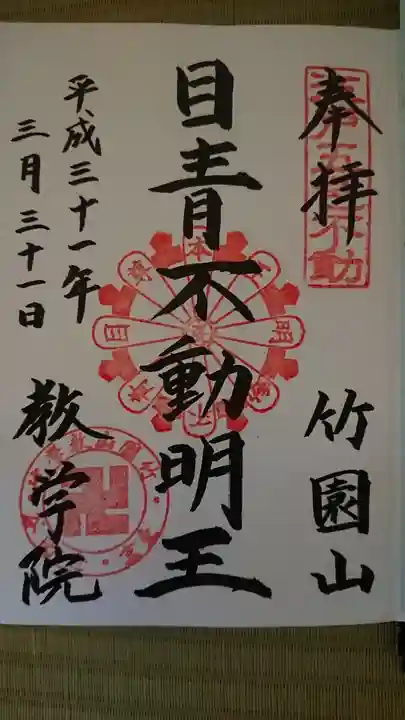 奉拝
江戸五色不動
竹園山
目青不動明王
平成三十一年
三月三十一日
教学院